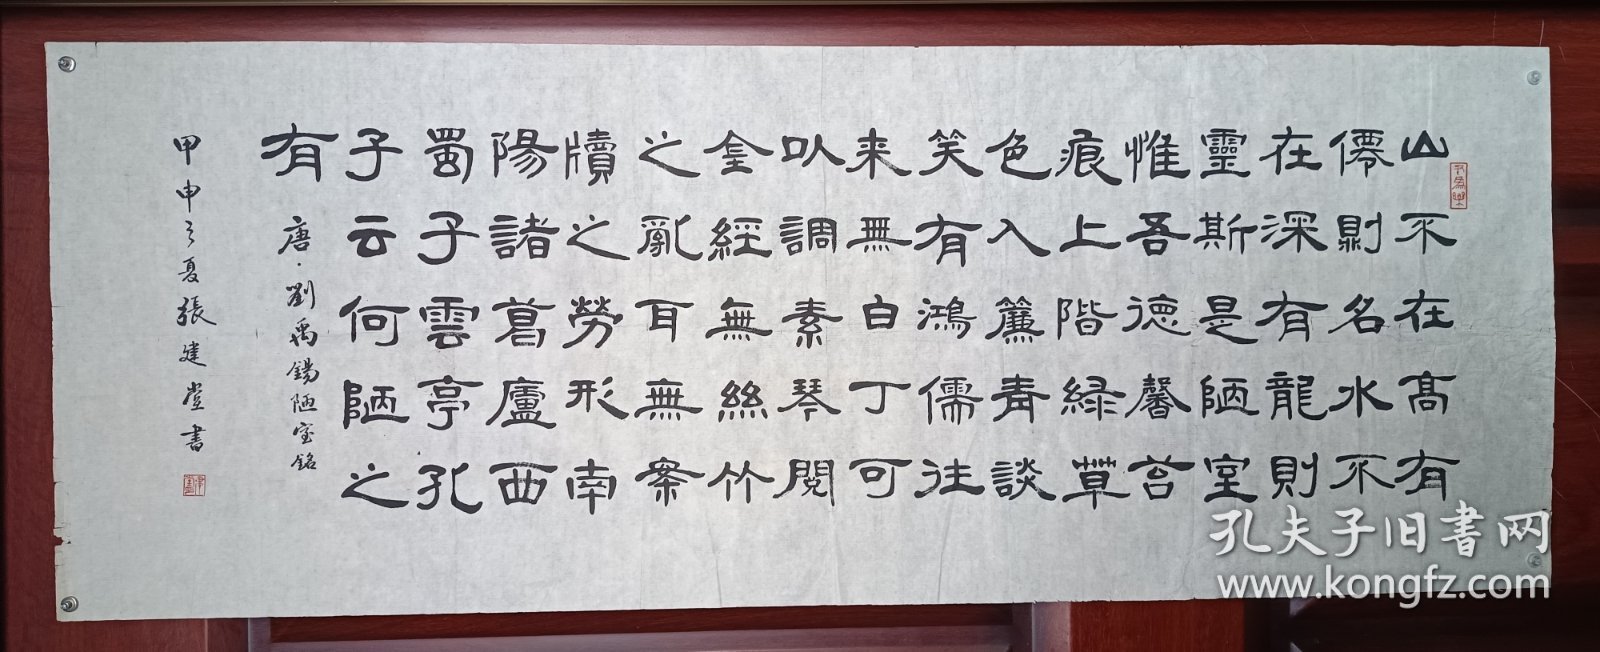 山不在高有
僊則名水不
在深有龍則
靈斯是陋室
惟吾德馨苔
痕上階緑草
色入簾青談
笑有鴻儒往
来無白丁可
以調素琴閱
金經無絲竹
之亂耳無案
牘之勞形南
陽諸葛廬西
蜀子雲亭孔
子云何陋之
有
唐·劉禹錫陋室銘
甲申之夏張建堂書
孔夫子旧书网
www.kongfz.com